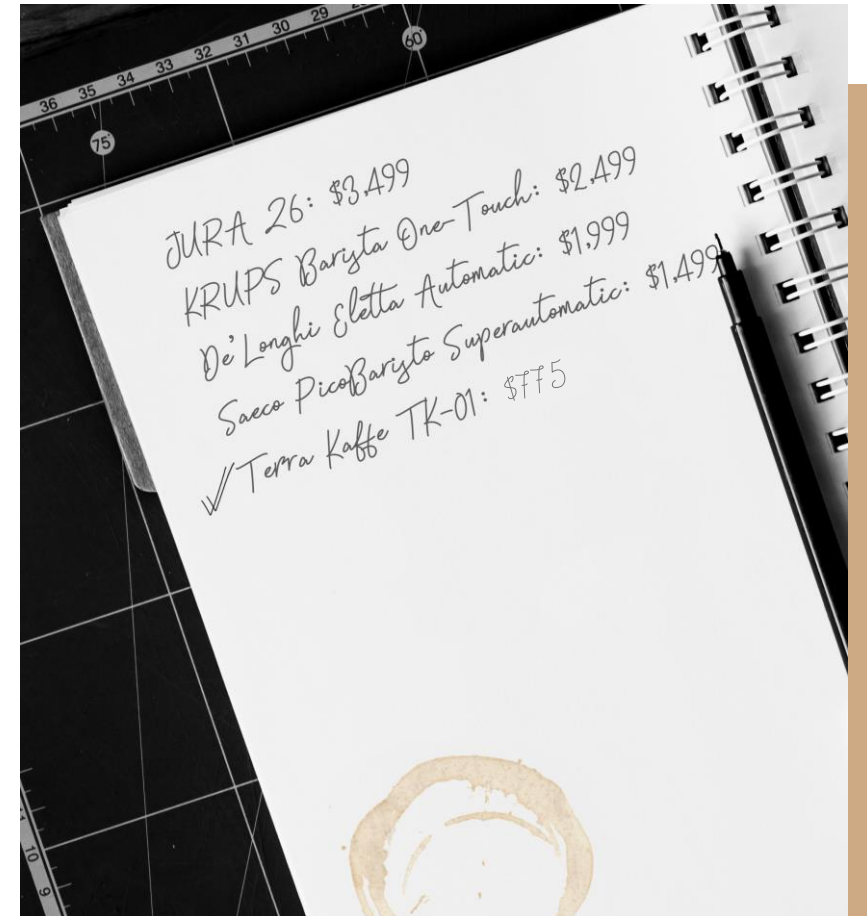 36 35 34 33 32 31 30 29
60°
75°
JURA Z6: $3,499
KRUPS Barista One-Touch: $2,499
De'Longhi Eletta Automatic: $1,999
Saeco PicoBaristo Superautomatic: $1,499
✓Terra Kaffe TK-01: $775
10
9